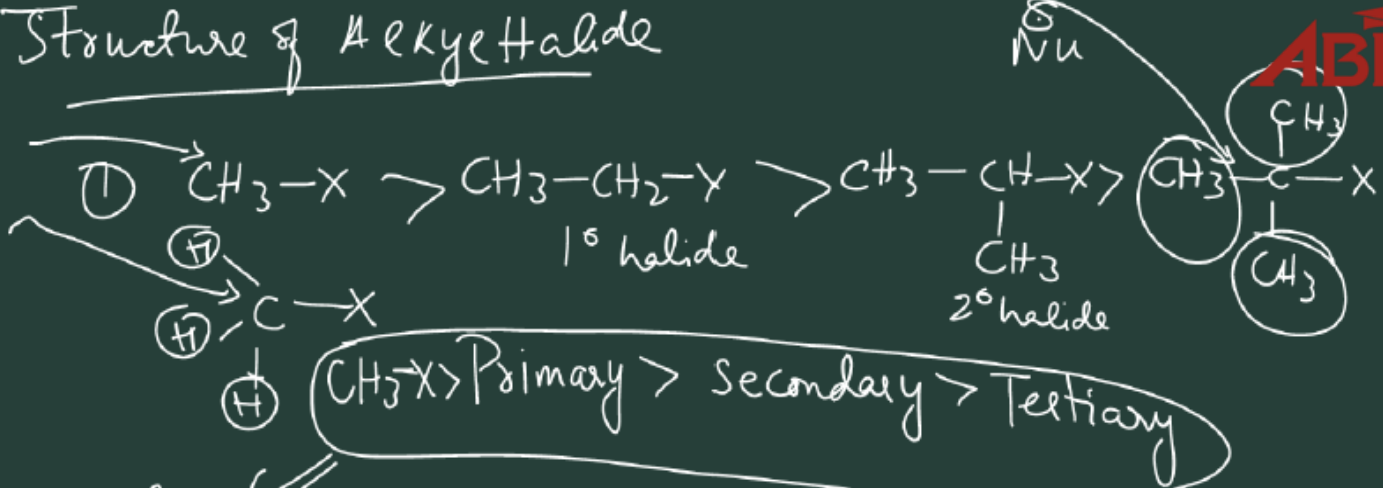 Structure of Alkyl Halide
Nu
ABI
① CH3—X > CH3—CH2—X > CH3—CH—X > CH3—C—X
CH3
1° halide
CH3
CH3
2° halide
H
H
C—X
H
CH3-X > Primary > Secondary > Tertiary